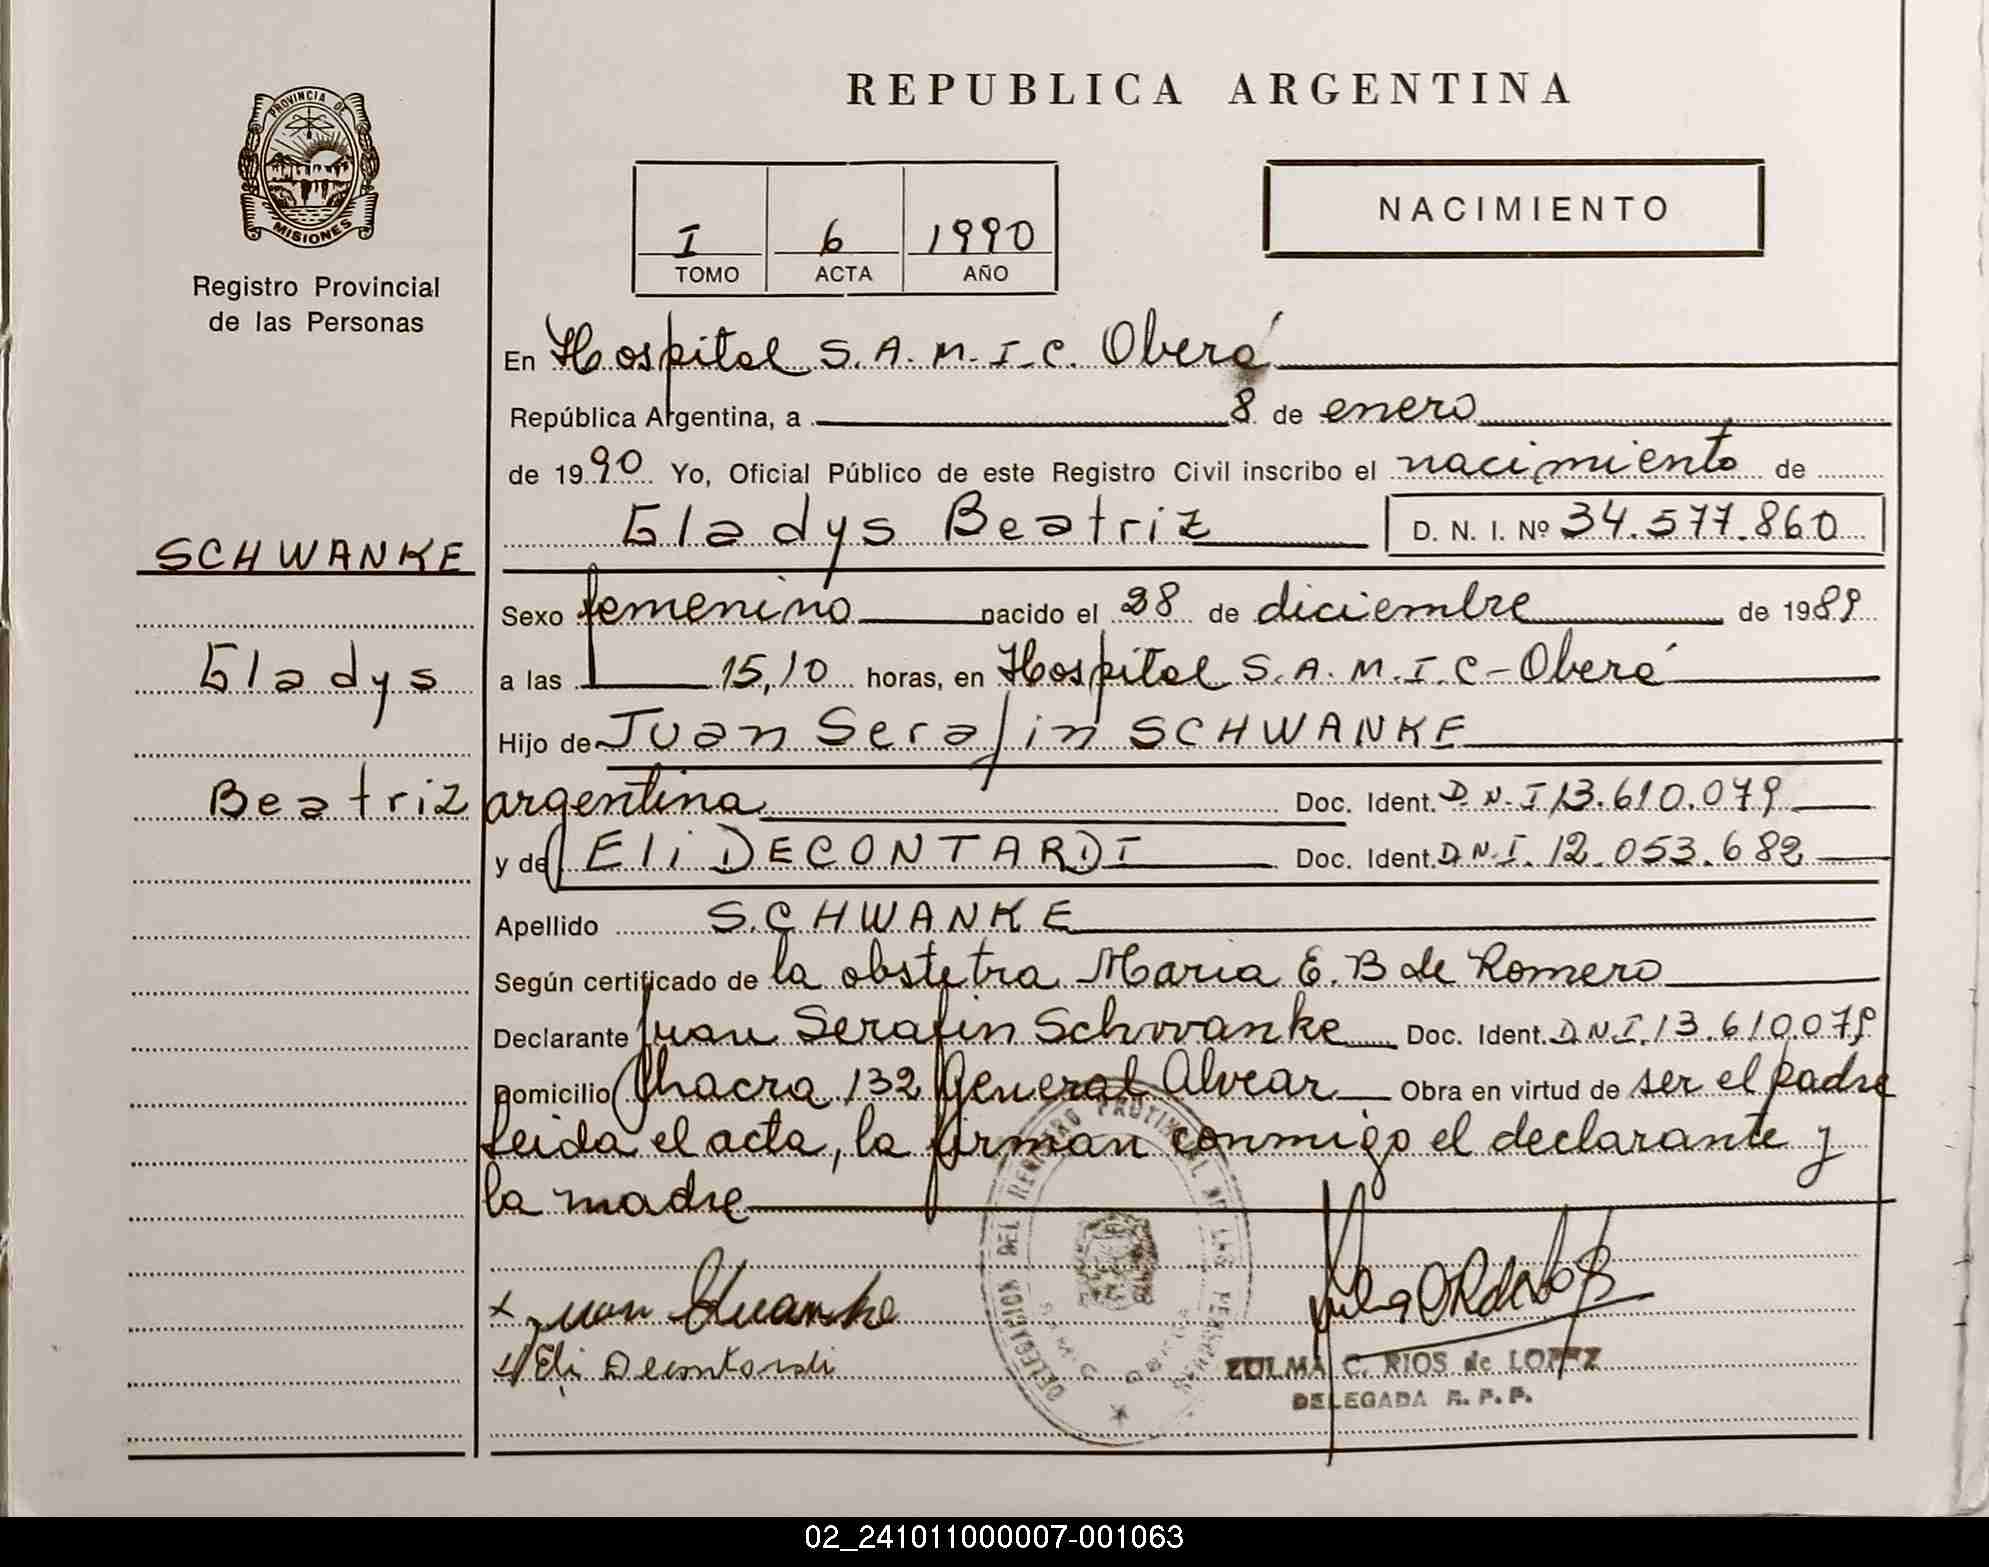 REPUBLICA ARGENTINA
PROVINCIA DE
MISIONES
Registro Provincial
de las Personas
I 6 1990
TOMO ACTA AÑO
NACIMIENTO
En Hospital S.A.M.I.C. Oberá
República Argentina, a 8 de enero
de 1990 Yo, Oficial Público de este Registro Civil inscribo el nacimiento de
Gladys Beatriz D. N. I. Nº 34.577.860
SCHWANKE
Gladys
Beatriz
Sexo femenino nacido el 28 de diciembre de 1989
a las 15,10 horas, en Hospital S.A.M.I.C-Oberá
Hijo de Juan Serafin SCHWANKE
argentina Doc. Ident. D.N.I 13.610.079
y de Eli DECONTARDI Doc. Ident. D.N.I. 12.053.682
Apellido SCHWANKE
Según certificado de la obstetra Maria E. B de Romero
Declarante Juan Serafin Schwanke Doc. Ident. D.N.I. 13.610.079
Domicilio Chacra 132 General Alvear Obra en virtud de ser el padre
leida el acta, la firman conmigo el declarante y
la madre
DELEGACION DEL REGISTRO PROVINCIAL DE LAS PERSONAS
x Juan Schwanke
x Eli Decontardi
ZULMA C. RIOS de LOPEZ
DELEGADA R. P. P.
02_241011000007-001063